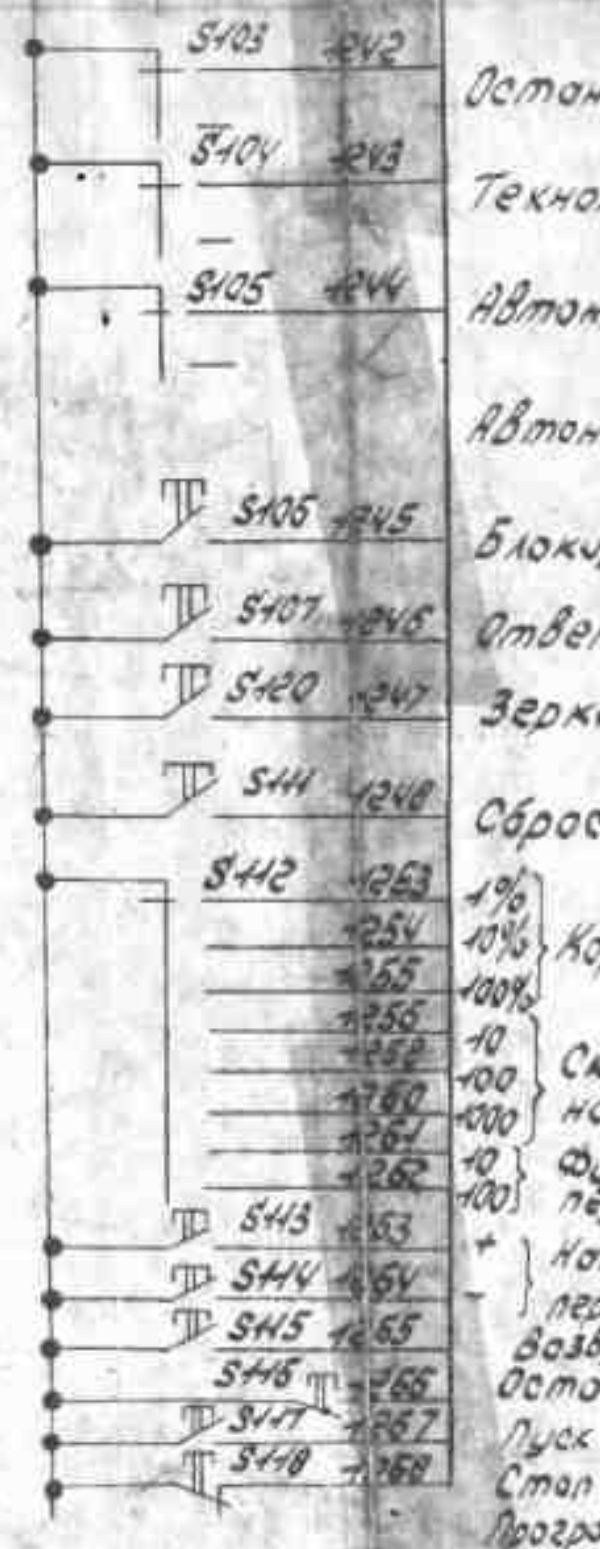 S103 1242
Остан
S104 1243
Техно
S105 1244
Автом
Автон
S106 1245
Блоки
S107 1246
Ответ
S120 1247
Зерк
S111 1248
Сброс
S112 1253 1%
1254 10% Кор
1255 100%
1256 10
100 Ск
1260 1000 но
1261 10
1262 100 пе
S113 1263 +
S114 1264 -
пер
S115 1265
Возв
S116 1266
Оста
S117 1267
Пуск
S118 1268
Стоп
Програ